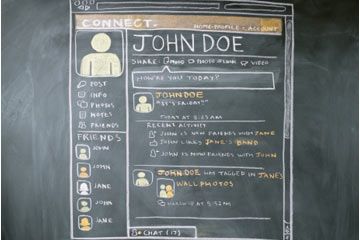 CONNECT.
HOME - PROFILE - ACCOUNT
JOHN DOE
SHARE: MOOD PHOTO ALBUM VIDEO
HOW'RE YOU TODAY?
POST
INFO
PHOTOS
NOTES
FRIENDS
JOHN DOE
"IT'S FRIDAY!"
TODAY AT 8:23AM
RECENT ACTIVITY
JOHN IS NOW FRIENDS WITH JANE
JOHN LIKES JANE'S BAND
JOHN IS NOW FRIENDS WITH JOHN
FRIENDS
JOHN
JOHN
JANE
JOHN
JANE
JOHN DOE HAS TAGGED IN JANE'S
WALL PHOTOS
AT 5:32AM
CHAT (17)